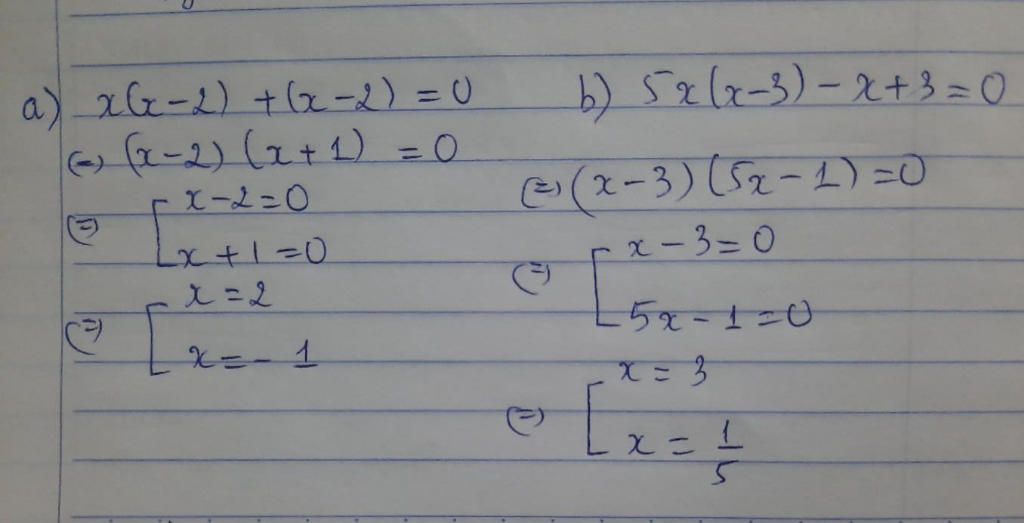 a) x(x-2) + (x-2) = 0
(=) (x-2) (x+1) = 0
(=) [ x-2=0
x+1=0
(=) [ x=2
x=-1
b) 5x(x-3) - x+3=0
(=) (x-3) (5x-1)=0
(=) [ x-3=0
5x-1=0
(=) [ x=3
x = 1/5